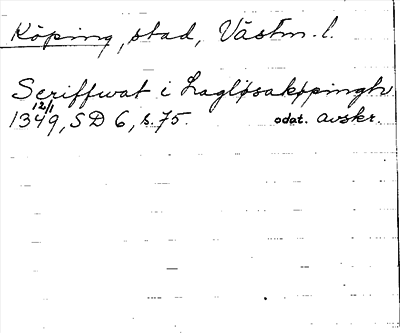 Köping, stad, Västm. l.
Scriffwat i Lagløsakøpingh
12/1
1349, SD 6, s. 75. odat. avskr.